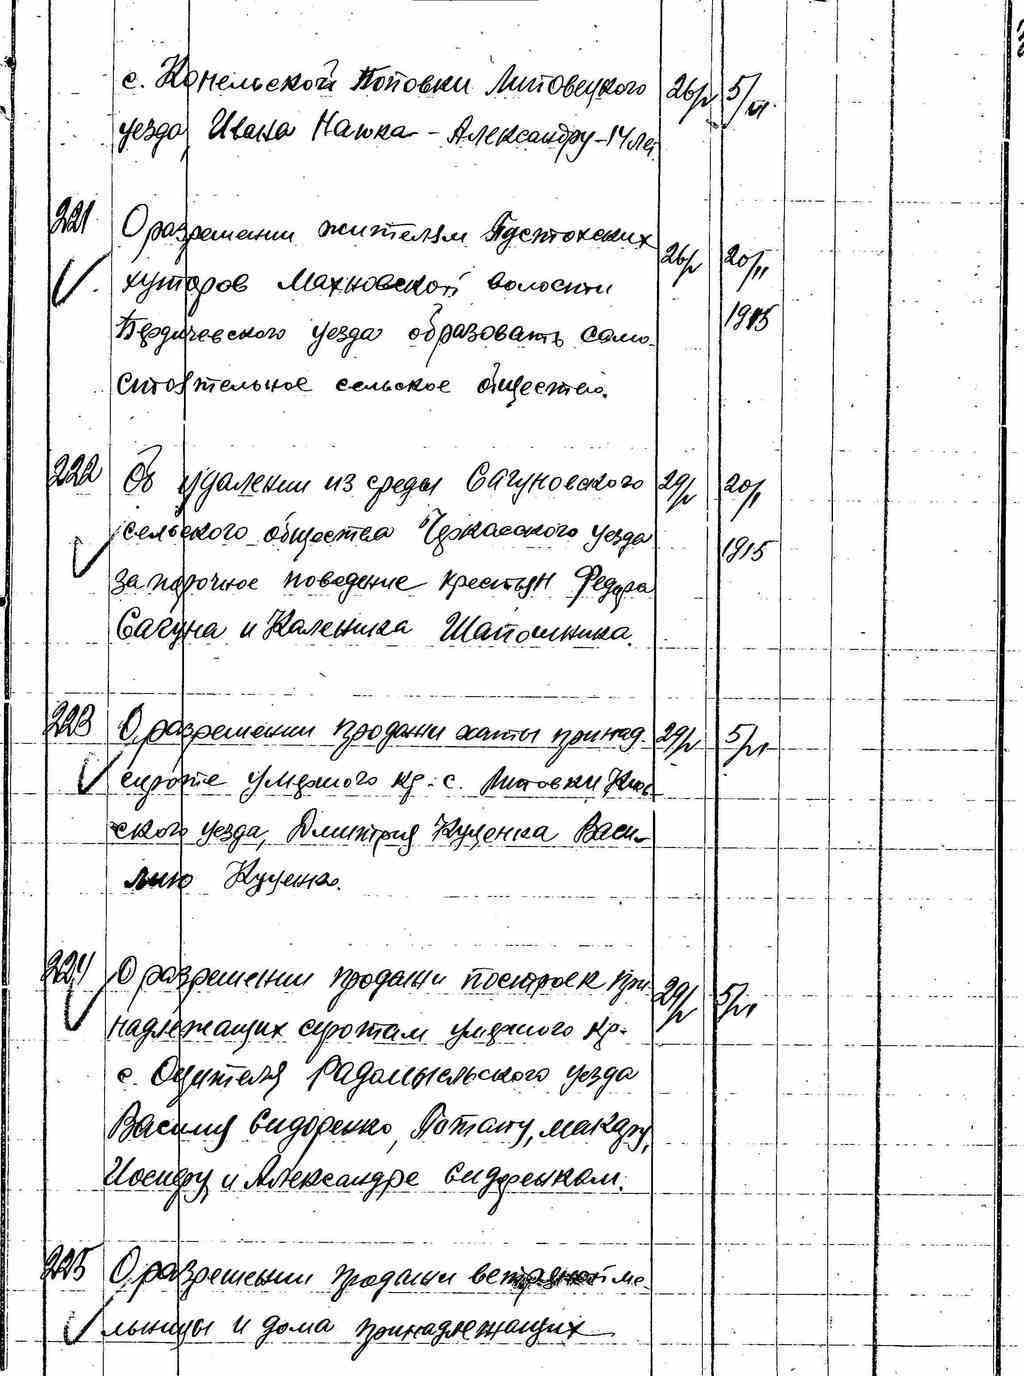 с. Конельской Поповки Липовецкого 26/V 5/VI
уезда, Ивана Наюка - Александру - 14 лет.
221 О разрешении жителям Пустохских 26/V 20/II 1915
хуторов Махновской волости
Бердичевского уезда образовать само-
стоятельное сельское общество.
222 Об удалении из среды Сагуновского 29/V 20/I 1915
сельского общества Черкасского уезда
за порочное поведение крестьян Федора
Сагуна и Каленика Шапошника.
223 О разрешении продажи хаты принад. 29/V 5/VI
сироте умершого кр. с. Литовки Киев-
ского уезда, Дмитрия Куценка Васи-
лию Куценко.
224 О разрешении продажи построек при- 29/V 5/VI
надлежащих сиротам умершого кр.
с. Ощителя Радомысльского уезда
Василия Сидоренко, Потапу, Макару,
Иосифу и Александре Сидоренкам.
225 О разрешении продажи ветряной ме-
льницы и дома принадлежащих